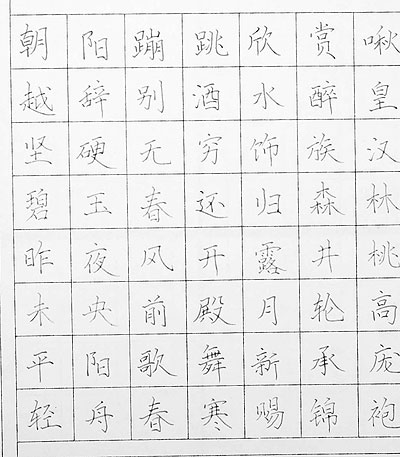 朝阳蹦跳欣赏啾
越辞别酒水醉皇
坚硬无穷饰族汉
碧玉春还归森林
昨夜风开露井桃
未央前殿月轮高
平阳歌舞新承庞
轻舟春寒赐锦袍